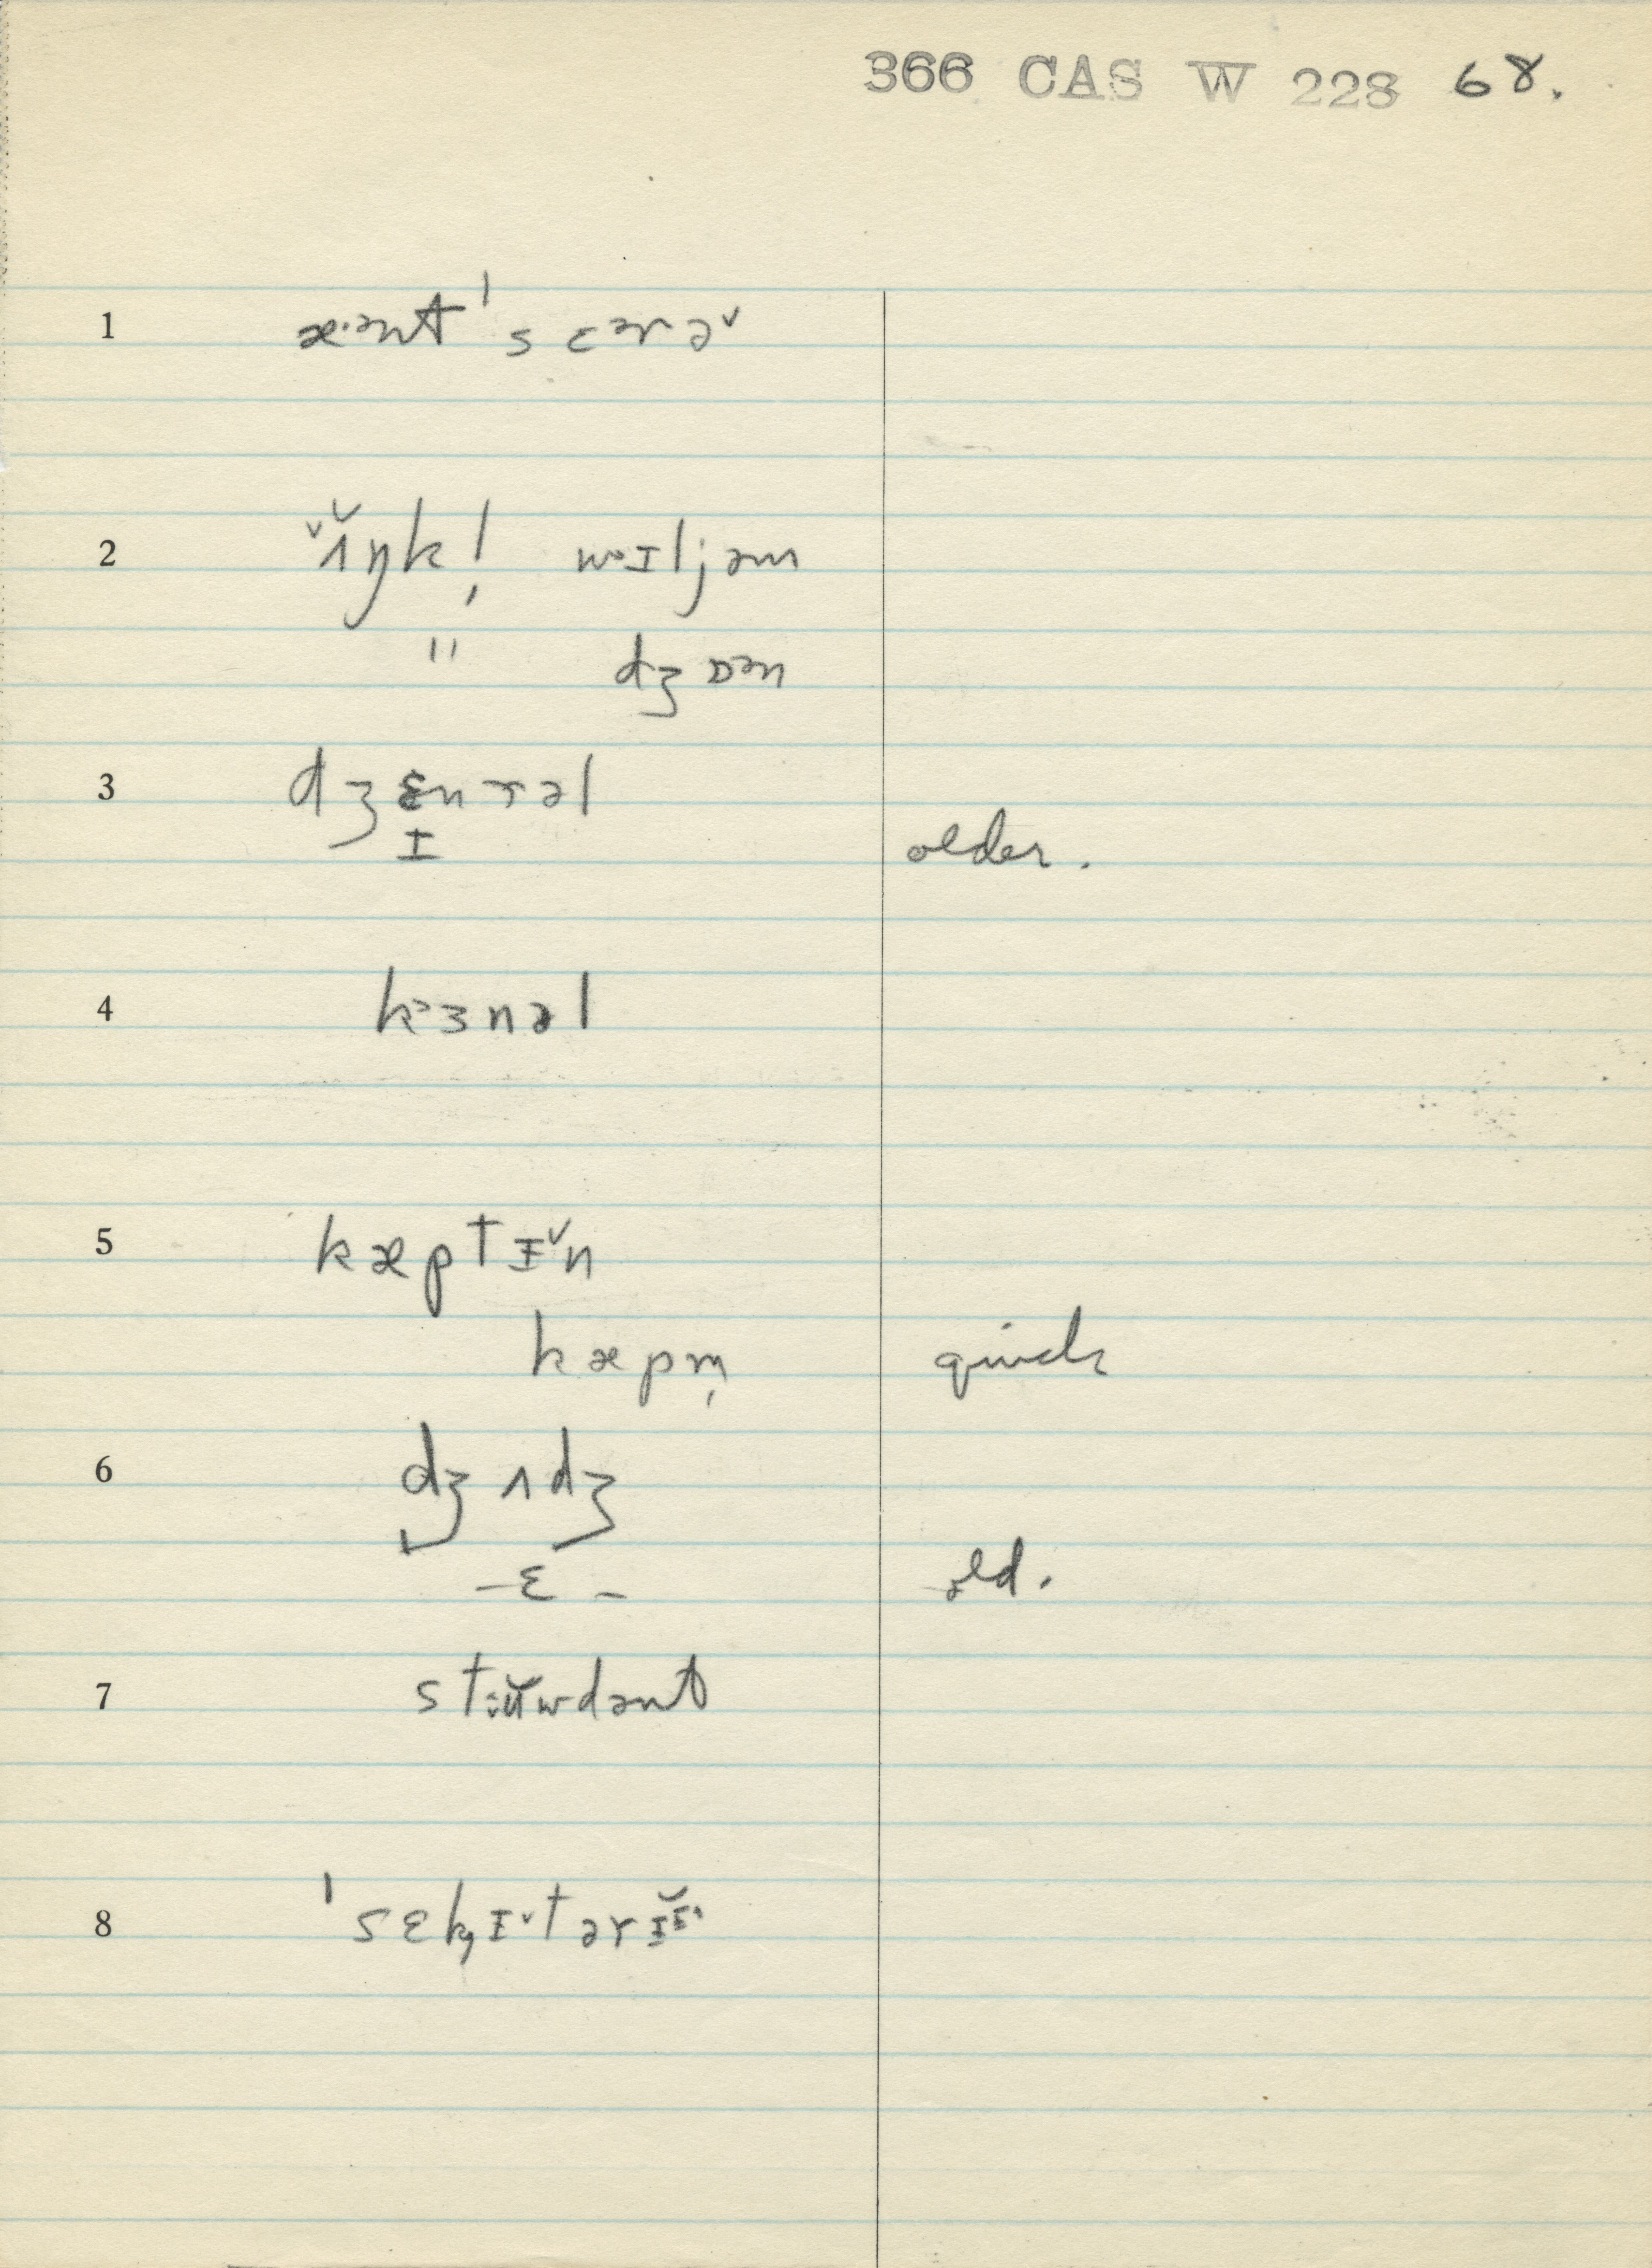 366 CAS W 228 68.
1 æ·ᵊnt ˈsɛᵊrə˅
2 ʌ̆ŋk! wᵊɪljəm
" dʒɒᵊn
3 dʒɛnrəl
ɪ older.
4 kᵊɜnəl
5 kæptɪ˅n
kæpm̩ quick
6 dʒʌdʒ
–ɛ– old.
7 stʉ̆wdənt
8 ˈsɛk̡ɪ˅tərɪɪ̆